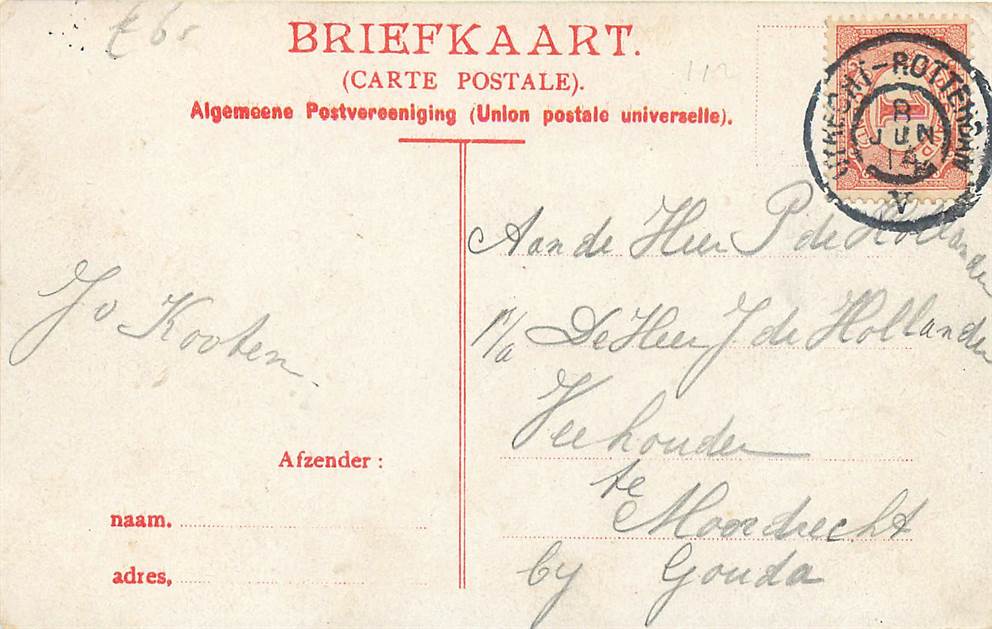 € 6,-
BRIEFKAART.
(CARTE POSTALE).
112
Algemeene Postvereeniging (Union postale universelle).
UTRECHT-ROTTERDAM
8
JUN
14
V
1
Aan de Heer P de Hollander
p/a De Heer J. de Hollander
Veehouder
te
Moordrecht
by Gouda
Jo Kooten.
Afzender:
naam.
adres,